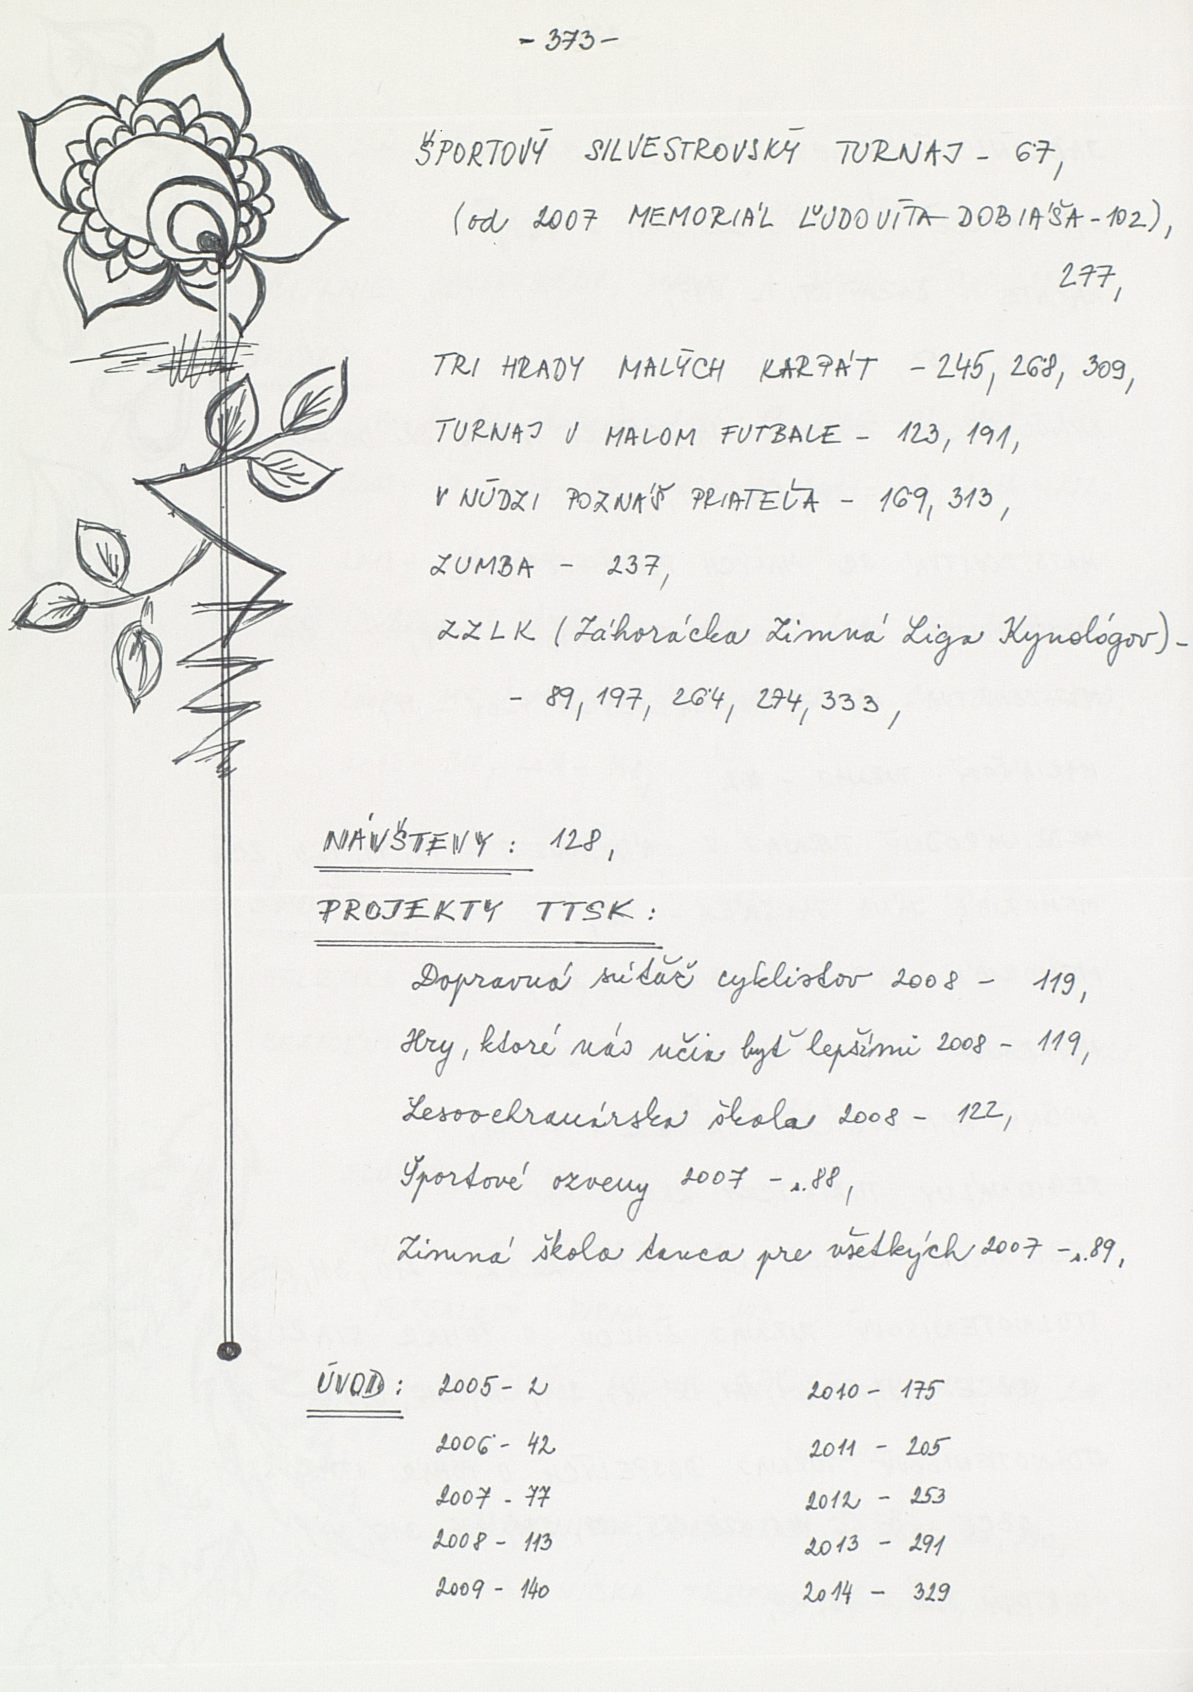 - 373 -
ŠPORTOVÝ SILVESTROVSKÝ TURNAJ - 67,
(od 2007 MEMORIÁL ĽUDOVÍTA DOBIÁŠA - 102),
277,
TRI HRADY MALÝCH KARPÁT - 245, 268, 309,
TURNAJ V MALOM FUTBALE - 123, 191,
V NÚDZI POZNÁŠ PRIATEĽA - 169, 313,
ZUMBA - 237,
ZZLK (Záhorácka Zimná Liga Kynológov) -
- 89, 197, 264, 274, 333,
NÁVŠTEVY: 128,
PROJEKTY TTSK:
Dopravná súťaž cyklistov 2008 - 119,
Hry, ktoré nás učia byť lepšími 2008 - 119,
Lesoochranárska škola 2008 - 122,
Športové ozveny 2007 - s. 88,
Zimná škola tanca pre všetkých 2007 - s. 89,
ÚVOD: 2005 - 2 2010 - 175
2006 - 42 2011 - 205
2007 - 77 2012 - 253
2008 - 113 2013 - 291
2009 - 140 2014 - 329